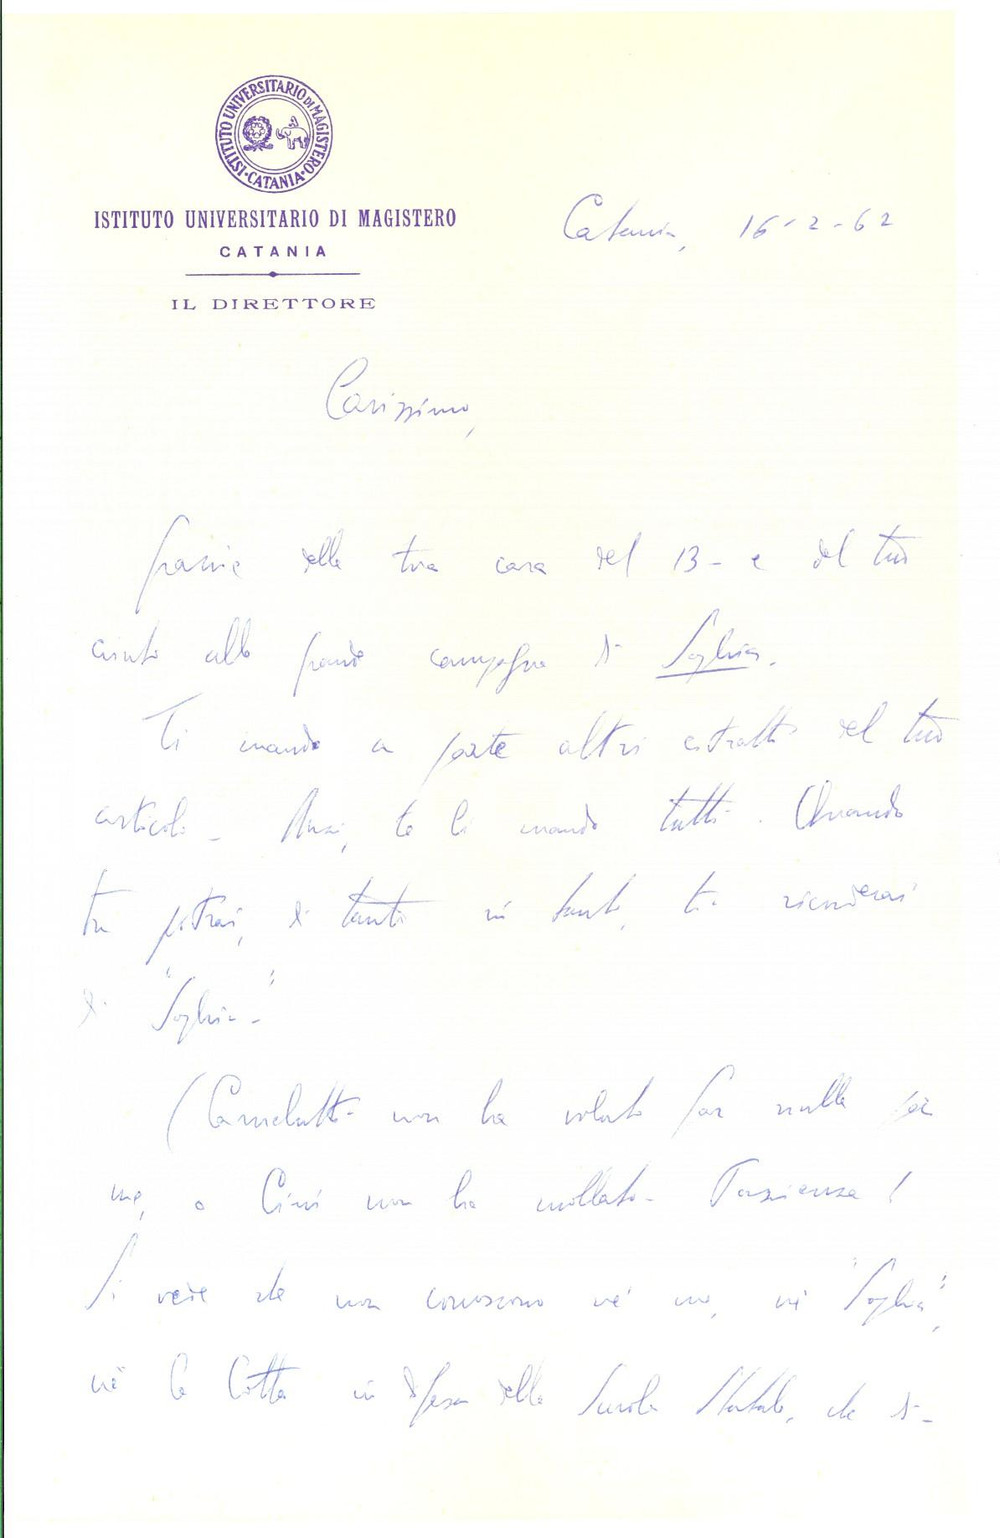 ISTITUTO UNIVERSITARIO DI MAGISTERO · CATANIA ·
ISTITUTO UNIVERSITARIO DI MAGISTERO
CATANIA
IL DIRETTORE
Catania, 16-2-62
Carissimo,
grazie della tua cara del 13 - e del tuo
aiuto alla grande campagna di Soglia.
Ti mando a parte altri estratti del tuo
articolo - Anzi, te li mando tutti. Quando
tu potrai, di tanto in tanto, ti ricorderai
di "Soglia" -
( non ha voluto far nulla per
me, o Cini non ha mollato - Pazienza!
Si vede che non conoscono né me, né "Soglia",
né la lotta in difesa della Scuola Statale, che di-